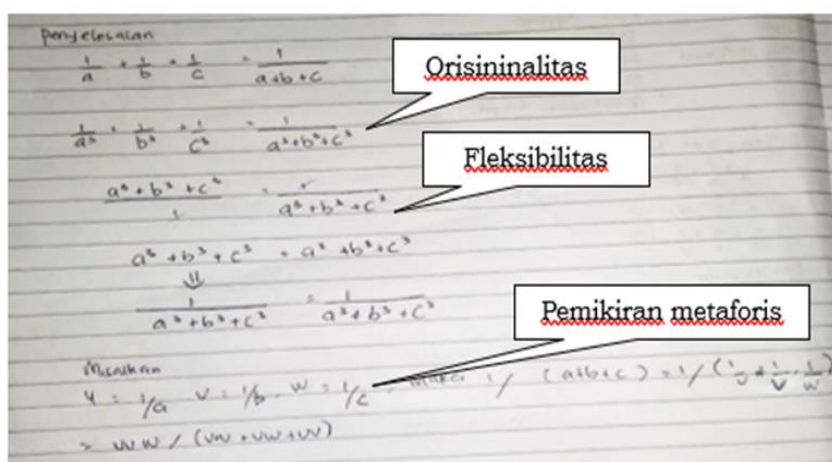 Penyelesaian
1/a + 1/b + 1/c = 1/a+b+c
Orisininalitas
1/a³ + 1/b³ + 1/c³ = 1/a³+b³+c³
Fleksibilitas
a³ + b³ + c³/1 = 1/a³+b³+c³
a³ + b³ + c³ = a³ + b³ + c³
⇓
1/a³+b³+c³ = 1/a³+b³+c³
Pemikiran metaforis
Misalkan
u = 1/a v = 1/b, w = 1/c, maka 1/(a+b+c) = 1/(1/u + 1/v + 1/w)
= uvw / (vw + uw + uv)